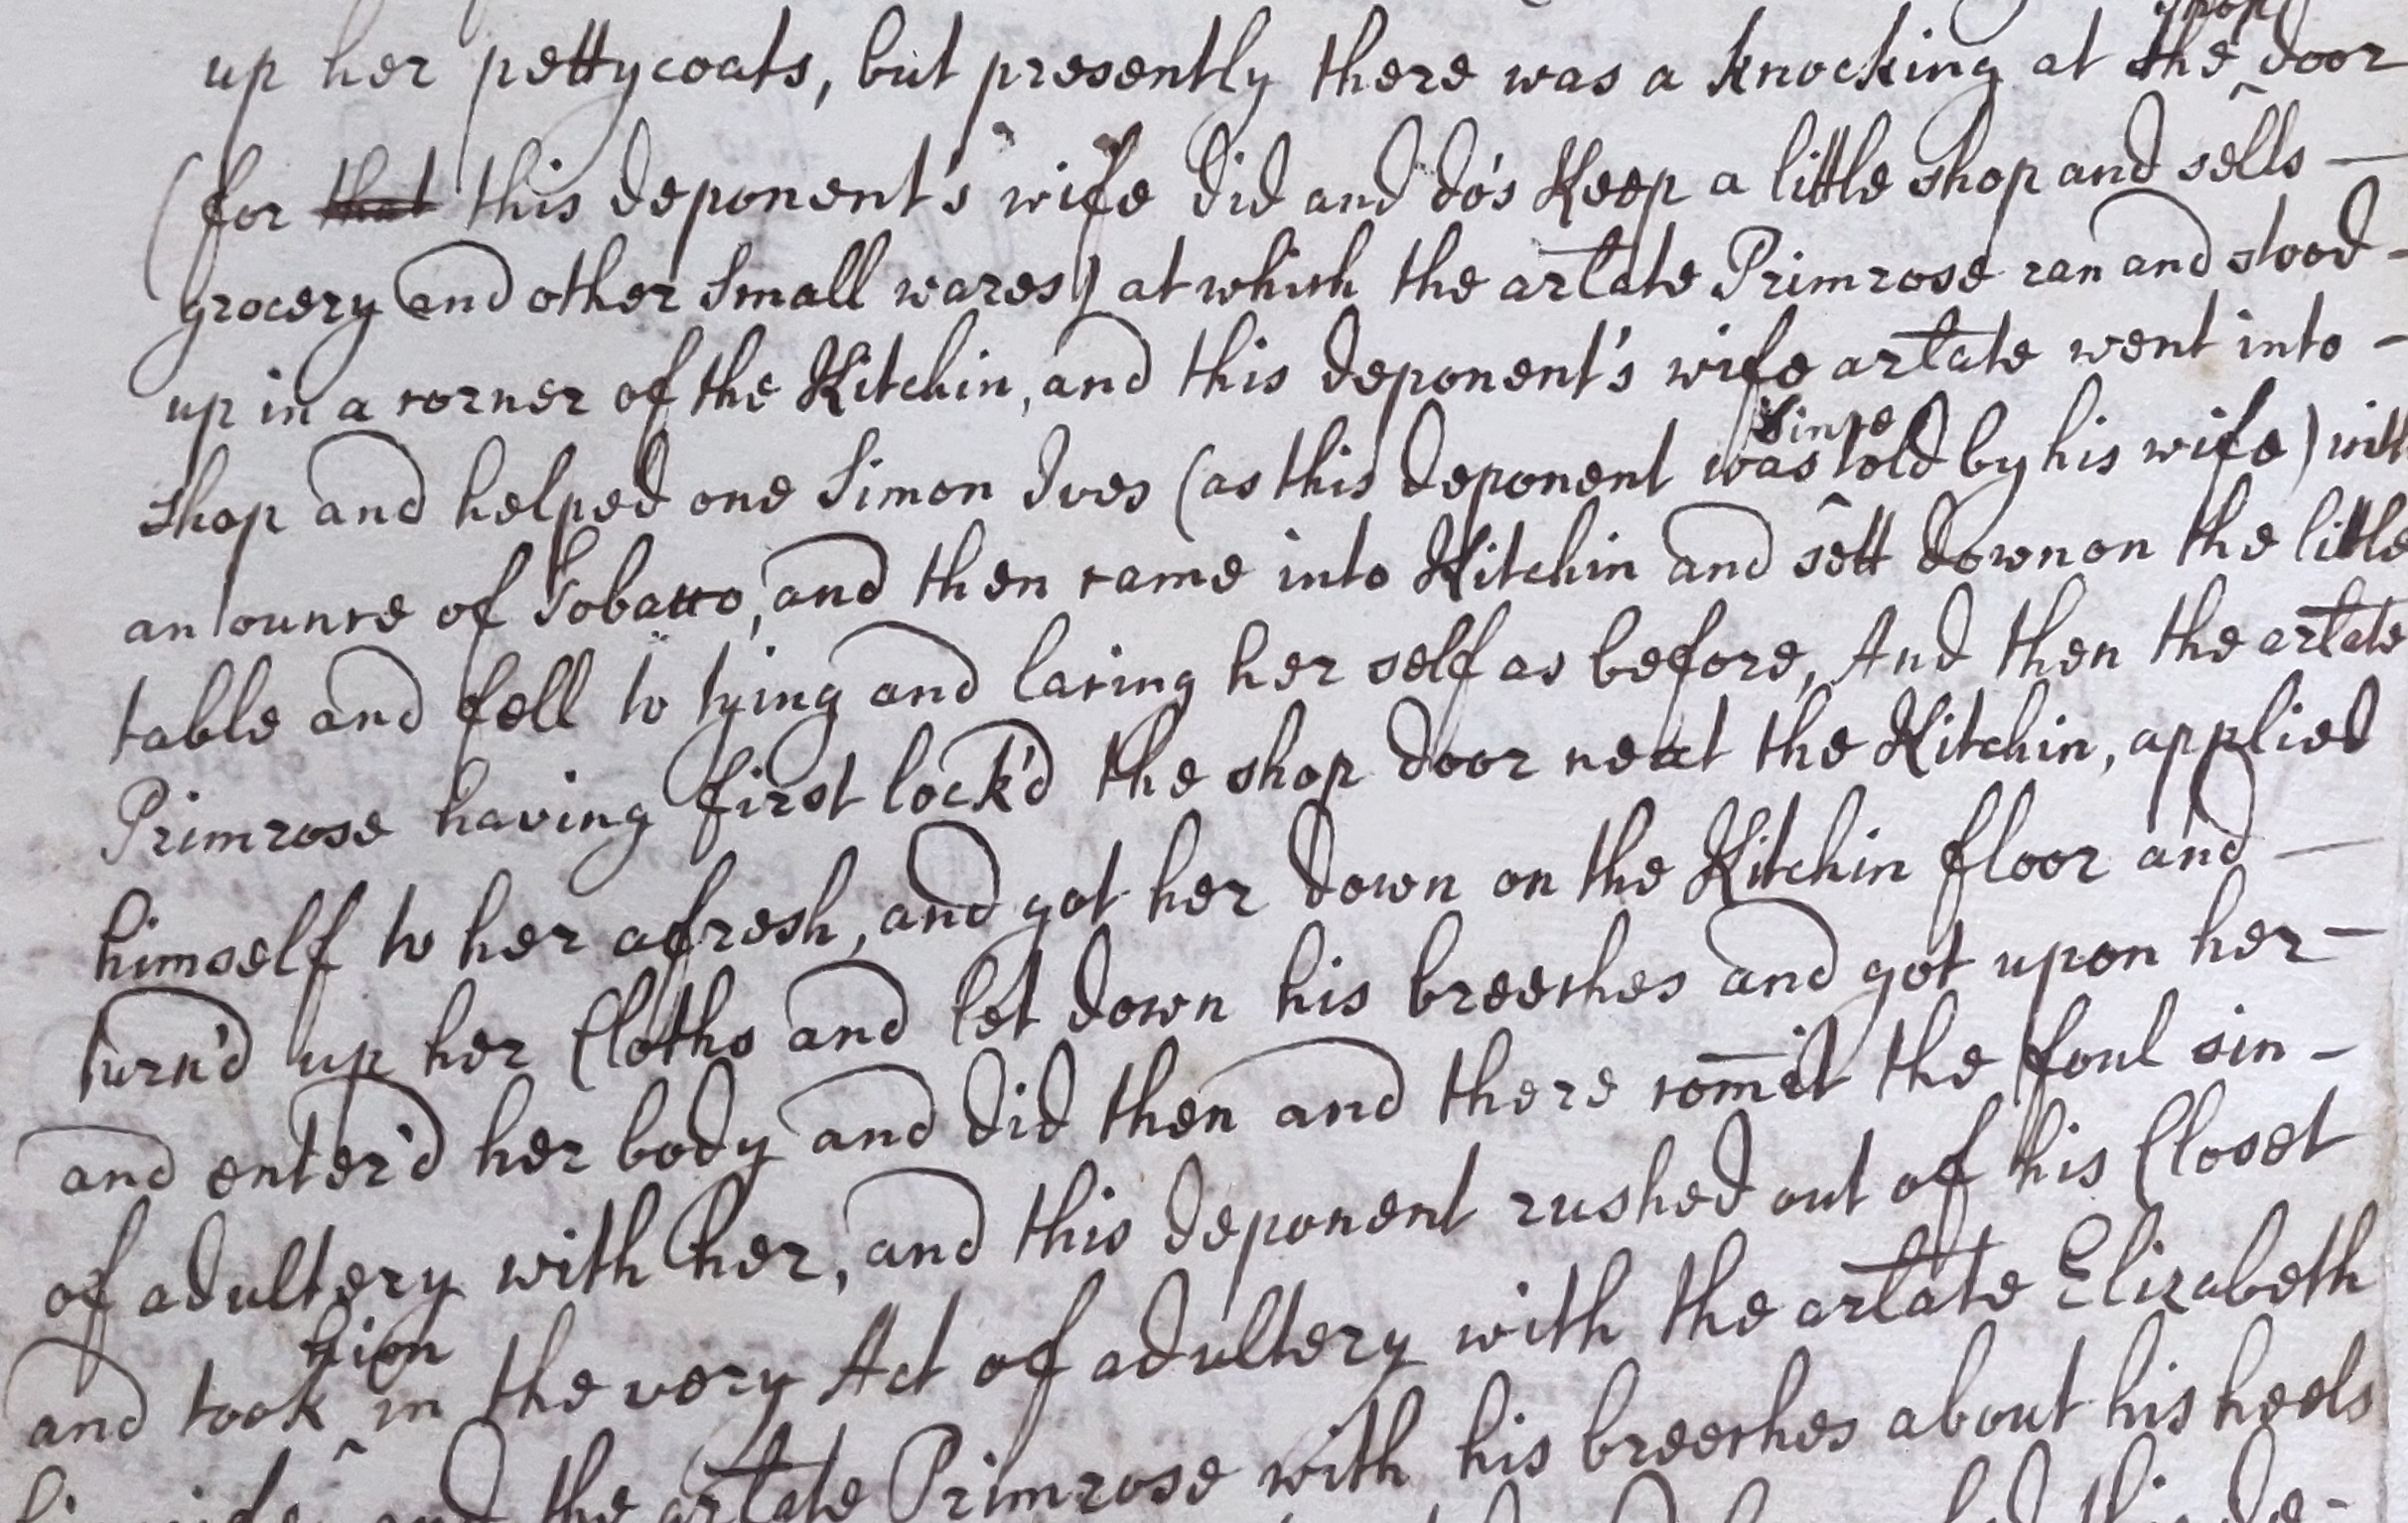 up her pettycoats, but presently there was a knocking at the ^shop door
(for that this deponent's wife did and do's keep a little shop and sells —
grocery and other small wares) at which the artate Primrose ran and stood -
up in a corner of the Kitchin, and this deponent's wife artate went into -
shop and helped one Simon Ives (as this deponent was ^since told by his wife) with
an ounce of Tobacco, and then came into Kitchin and sett down on the little
table and fell to tying and lacing her self as before, And then the artate
Primrose having first lock'd the shop door next the Kitchin, applied
himself to her afresh, and got her down on the Kitchin floor and —
turn'd up her Cloths and let down his breeches and got upon her -
and enter'd her body and did then and there com̄it the foul sin -
of adultery with her, and this deponent rushed out of his Closet
and took ^him in the very Act of adultery with the artate Elizabeth
his wife, and the artate Primrose with his breeches about his heels